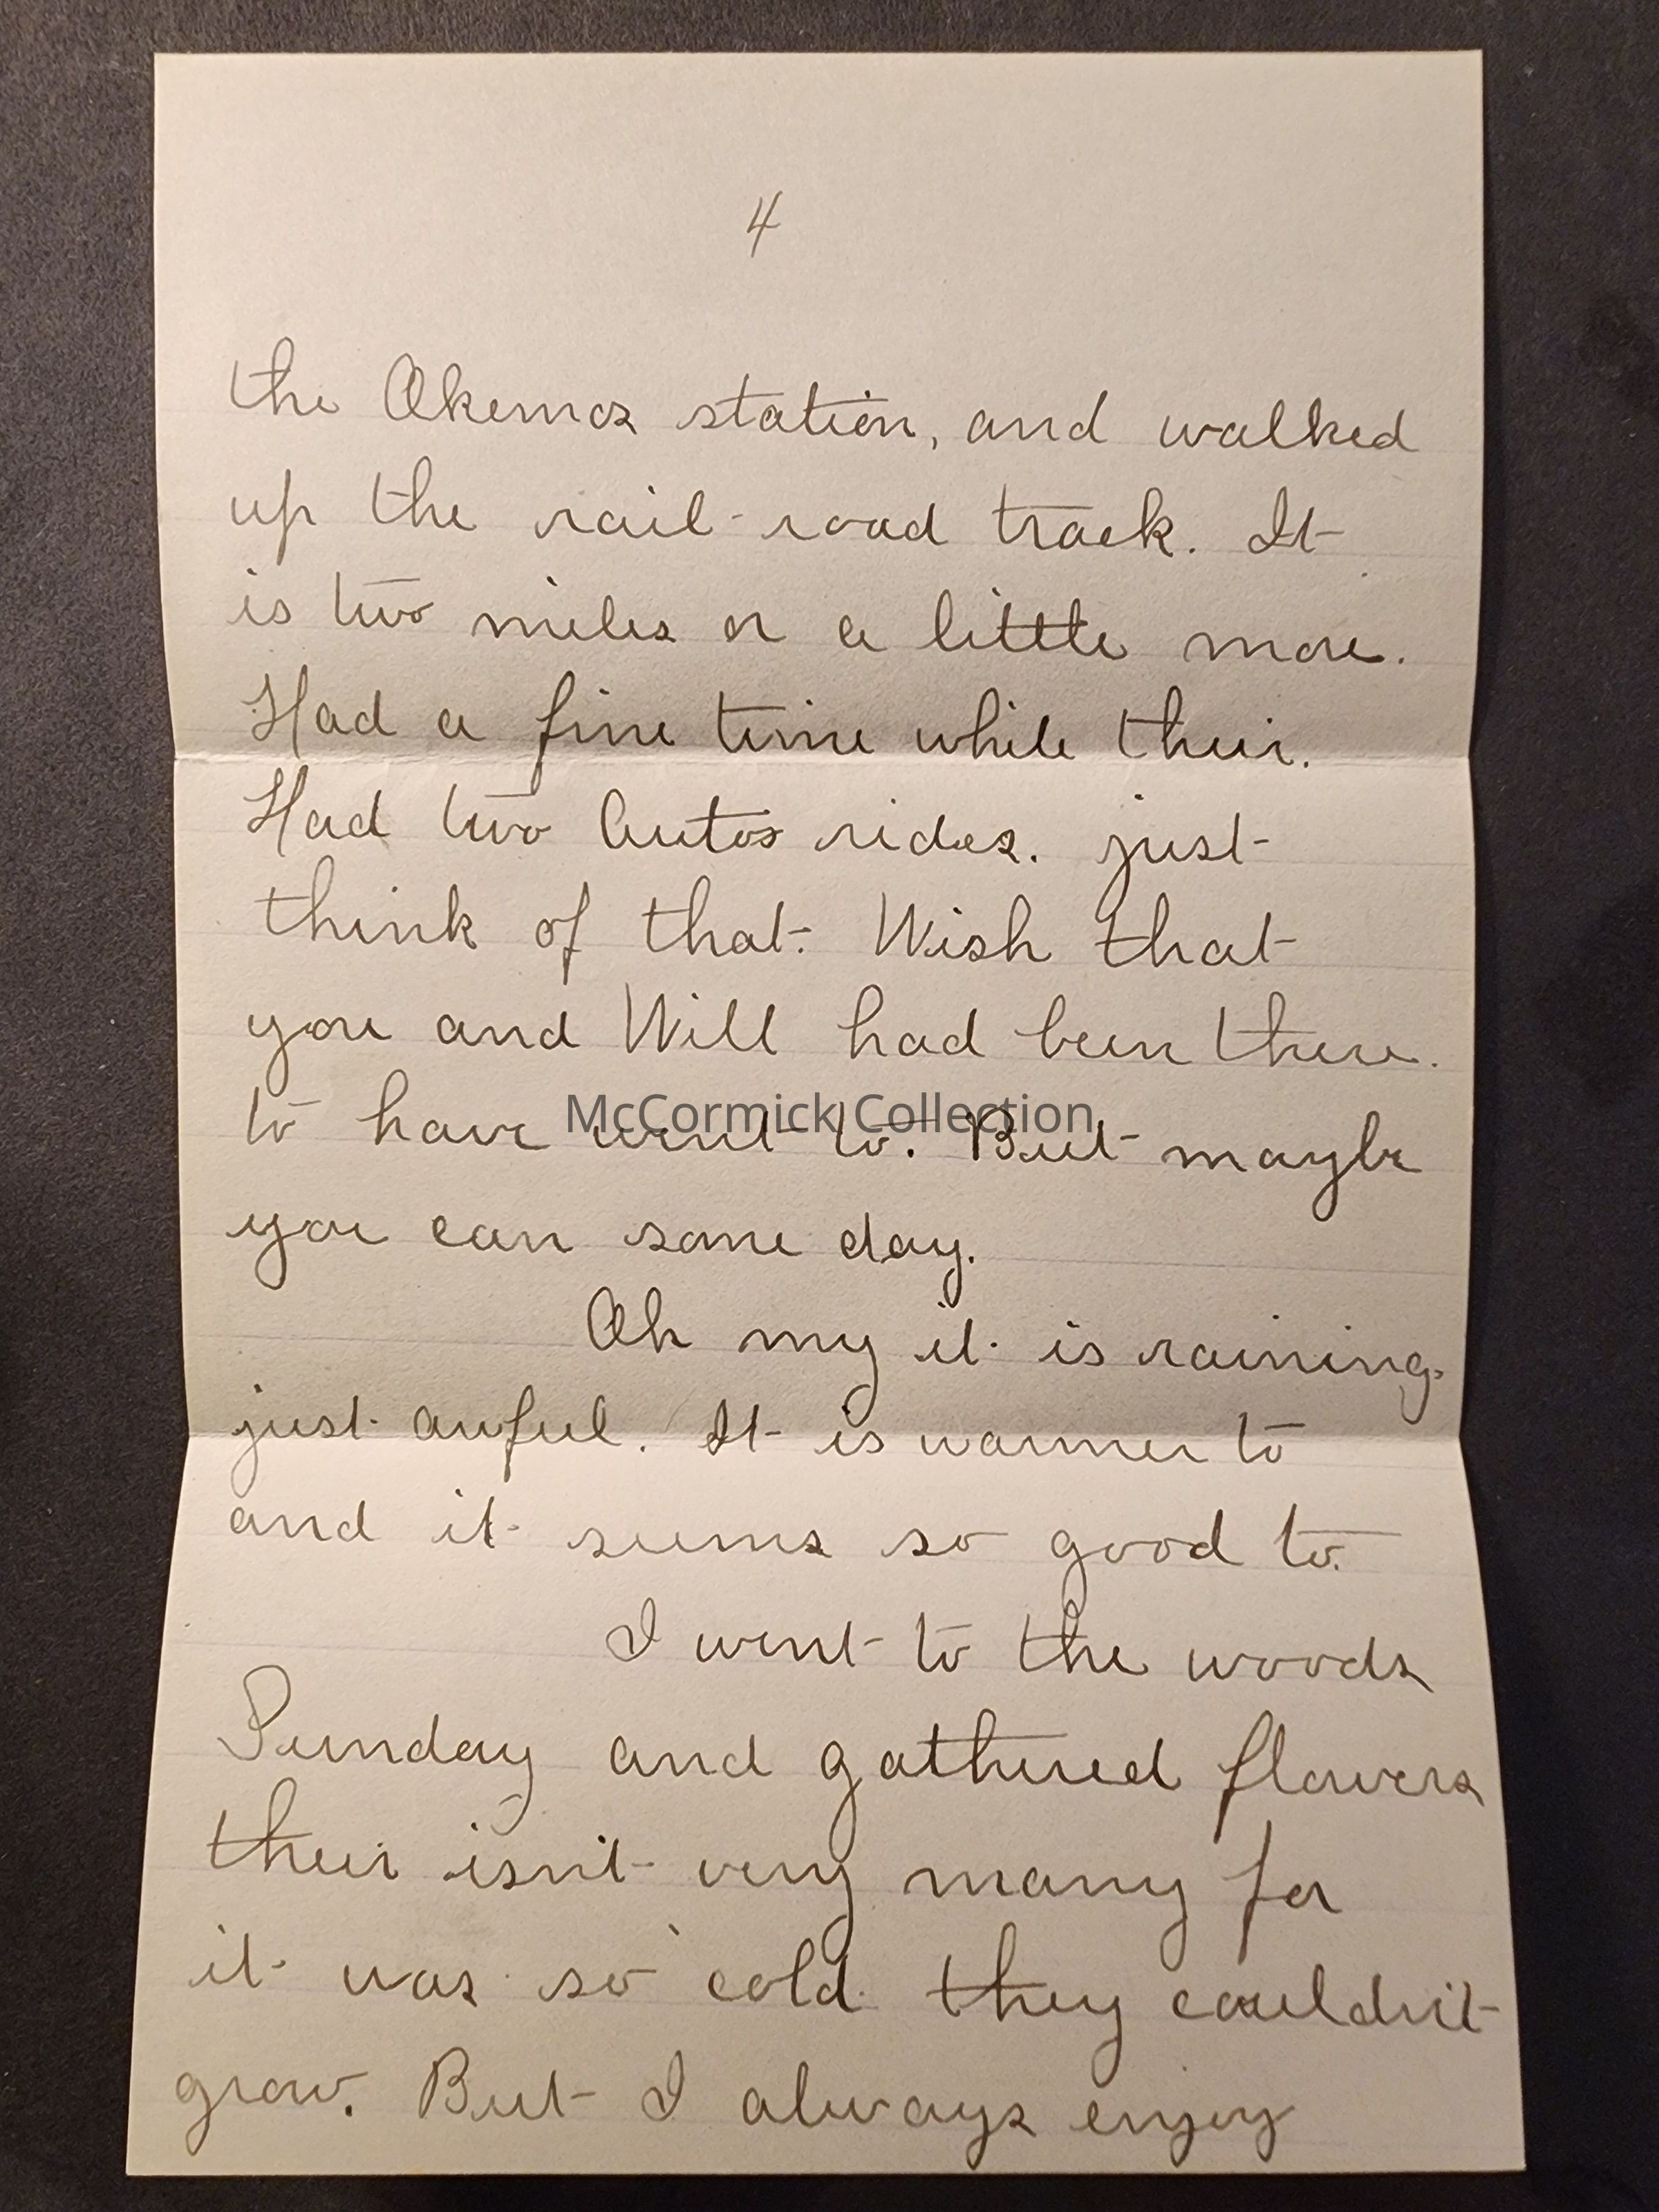 4
the Okemos station, and walked
up the rail-road track. It
is two miles or a little more.
Had a fine time while their.
Had two Autos rides. just
think of that. Wish that
you and Will had been there.
to have went to. But maybe
McCormick Collection
you can some day.
Oh my it is raining
just awful. It is warmer to
and it seems so good to.
I went to the woods
Sunday and gathered flowers
their isn't very many for
it was so cold they couldn't
grow. But I always enjoy